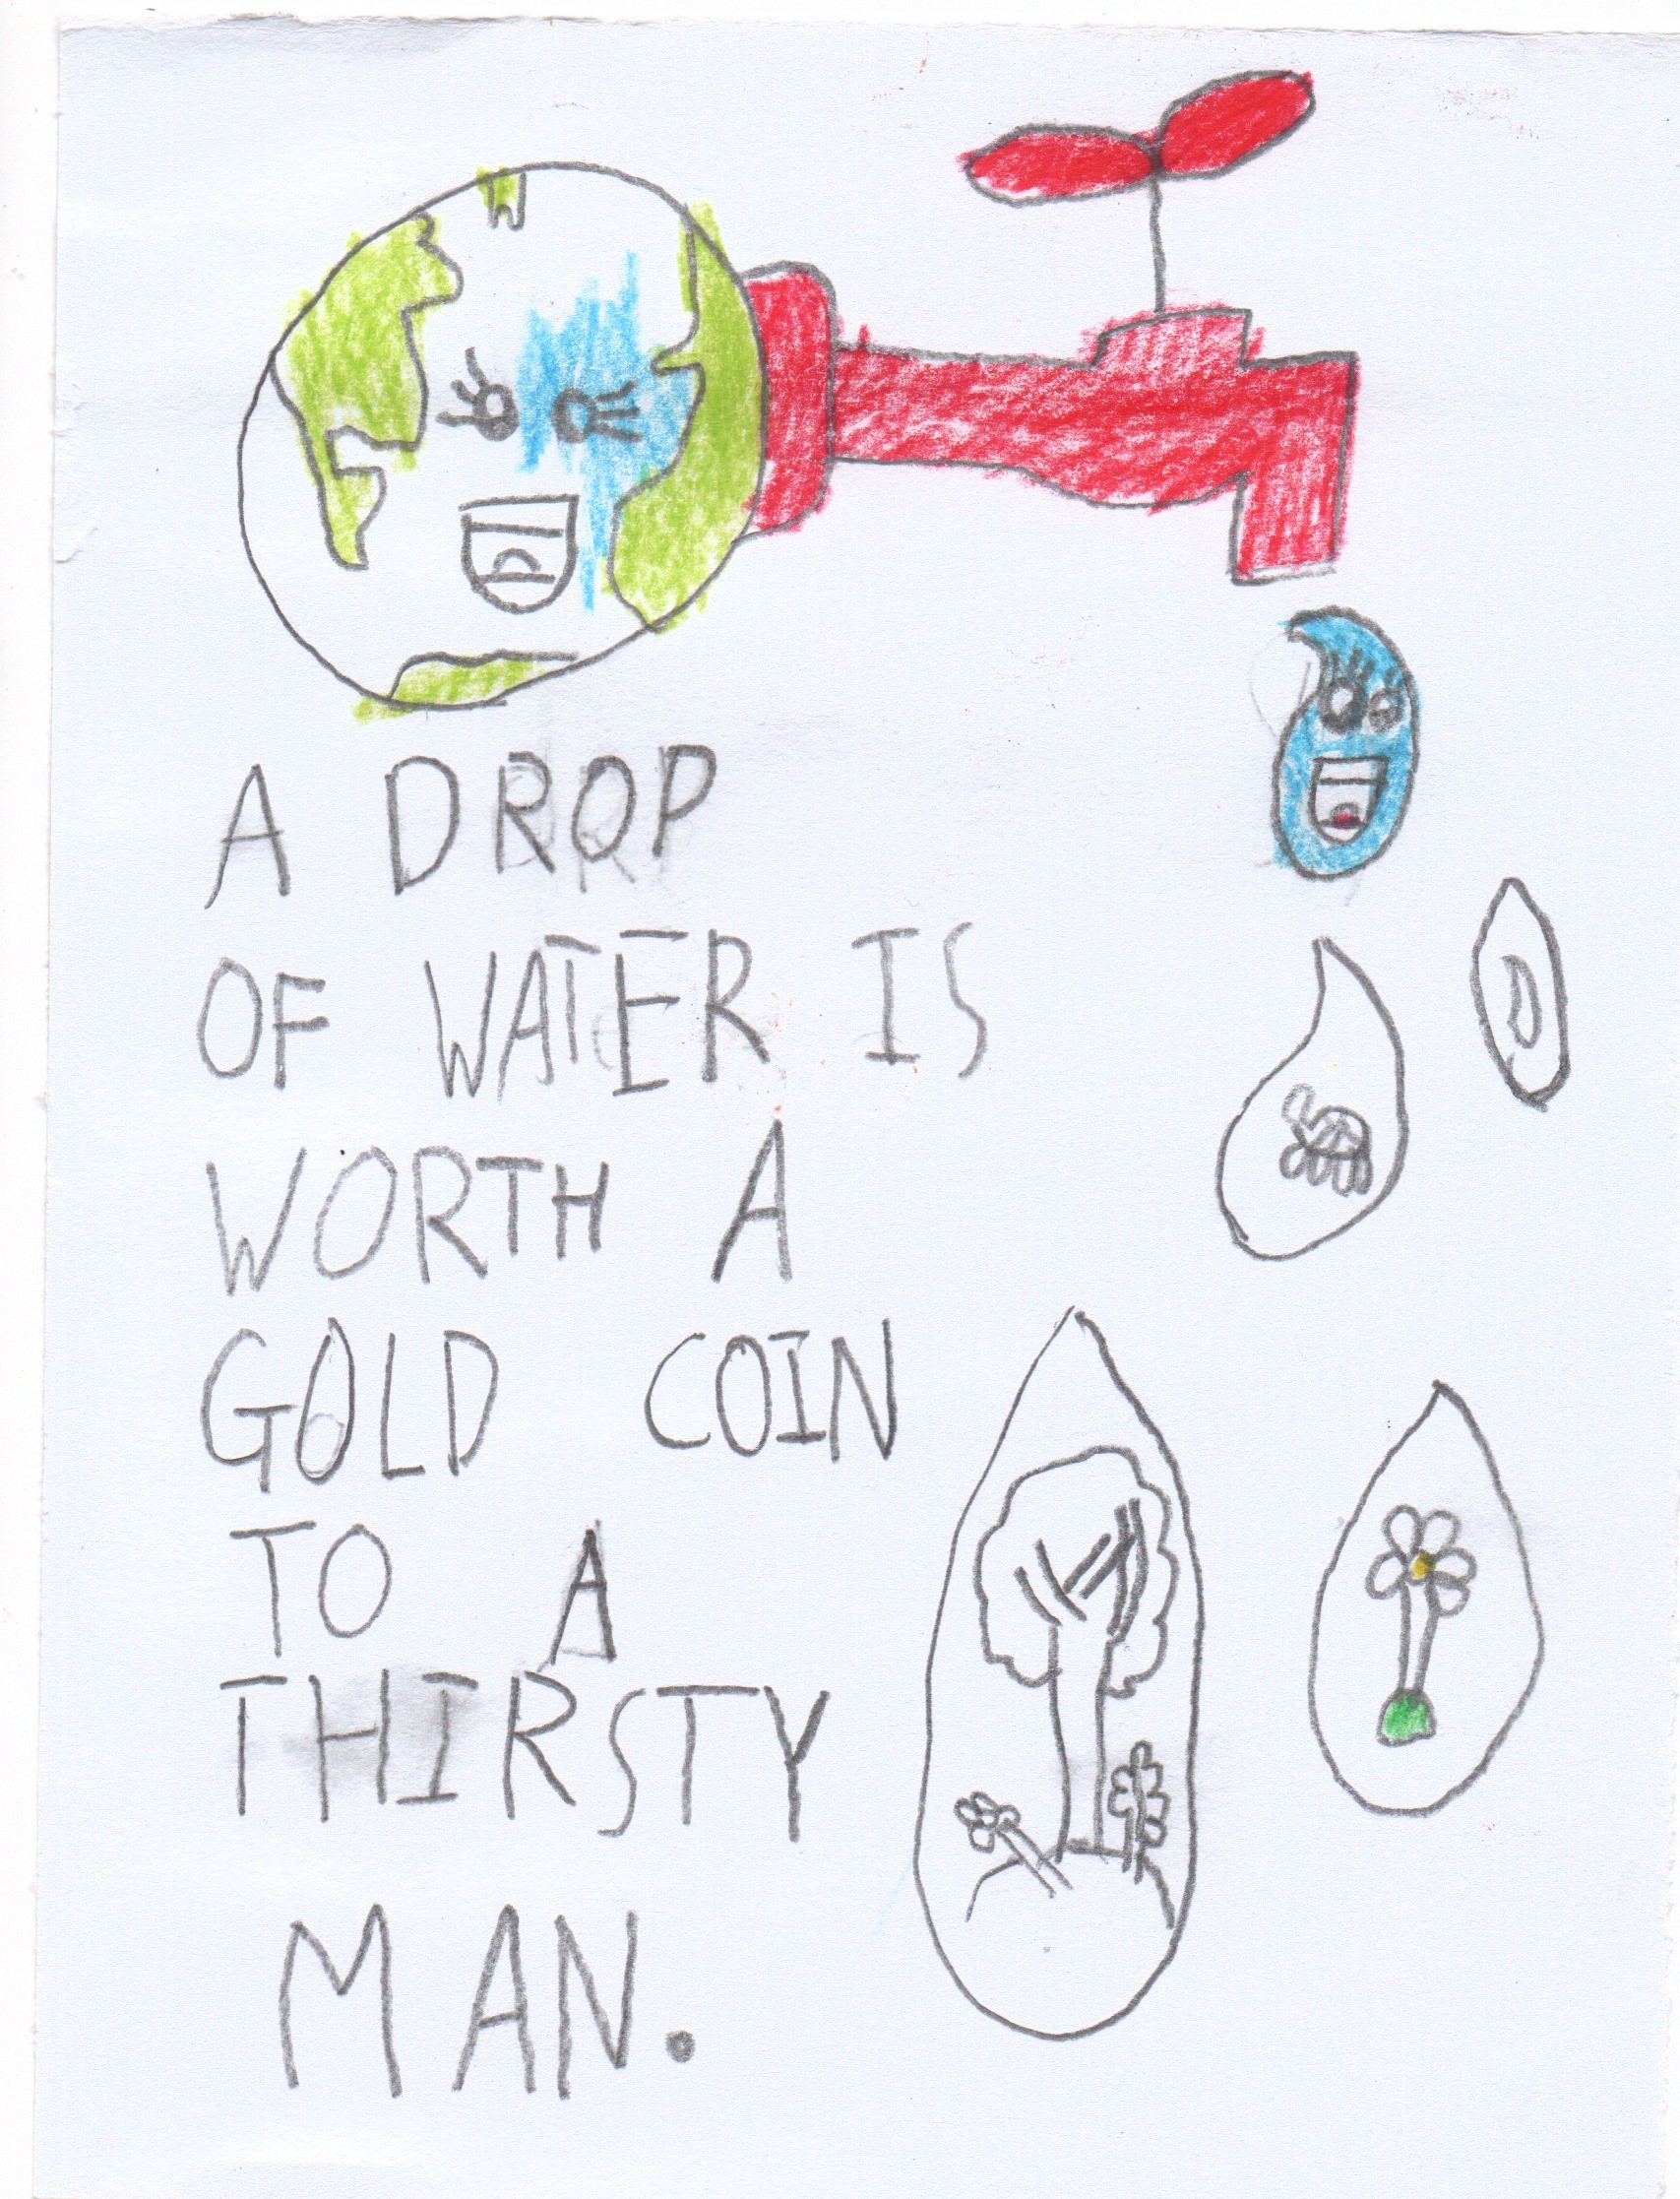 A DROP
OF WATER IS
WORTH A
GOLD COIN
TO A
THIRSTY
MAN.